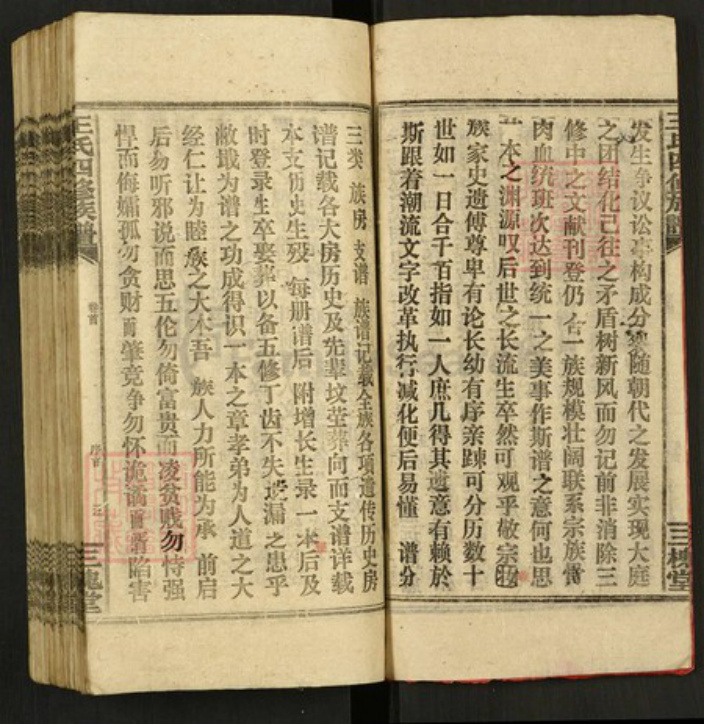 王氏四修族譜
三槐堂
发生争议讼事构成分裂随朝代之发展实现大庭
之团结化己往之矛盾树新风而勿记前非消除三
修中之文献刊登仍合一族规模壮阔联系宗族骨
肉血统班次达到统一之美事作斯谱之意何也思
本之渊源叹后世之长流生卒然可观乎敬宗
族家史遗傅尊卑有论长幼有序亲踈可分历数十
世如一日合千百指如一人庶几得其遗意有赖於
斯跟着潮流文字改革执行减化便后易懂 谱分
三类 族房 支谱 族谱记载全族各项遗传历史房
谱记载各大房历史及先辈坟茔葬向而支谱详载
本支历史生殁 每册谱后 附增长生录一本后及
时登录生卒娶葬以备五修丁齿不失遗漏之患乎
敝戢为谱之功成得识一本之章孝弟为人道之大
经仁让为睦族之大本吾 族人力所能为承 前启
后勿听邪说而思五伦勿倚富贵而凌贫贱勿恃强
悍而侮孀孤勿贪财而肇竞争勿怀诡谲而婿陷害
王氏四修族譜
卷首
序言
三槐堂